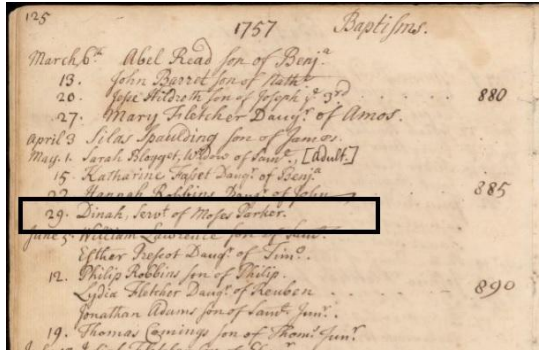 125
1757 Baptisms.
March 6th. Abel Read son of Benja.
13. John Barret son of Nathl
20. Jesse Hildreth son of Joseph ye 3rd 880
27. Mary Fletcher Daugr. of Amos.
April 3 Silas Spaulding son of James.
May. 1. Sarah Blogget, Widow of Saml., [adult.]
15. Katharine Faset Daugr. of Benja
22 Hannah Robbins Daugr. of John 885
29. Dinah, Servt. of Moses Parker.
June 5. William Lawrence son of Saml.
Esther Prescot Daugr. of Timo.
12. Philip Robbins son of Philip.
Lydia Fletcher Daugr. of Reuben 890
Jonathan Adams son of Saml. Junr.
19. Thomas Comings son of Thoms. Junr.